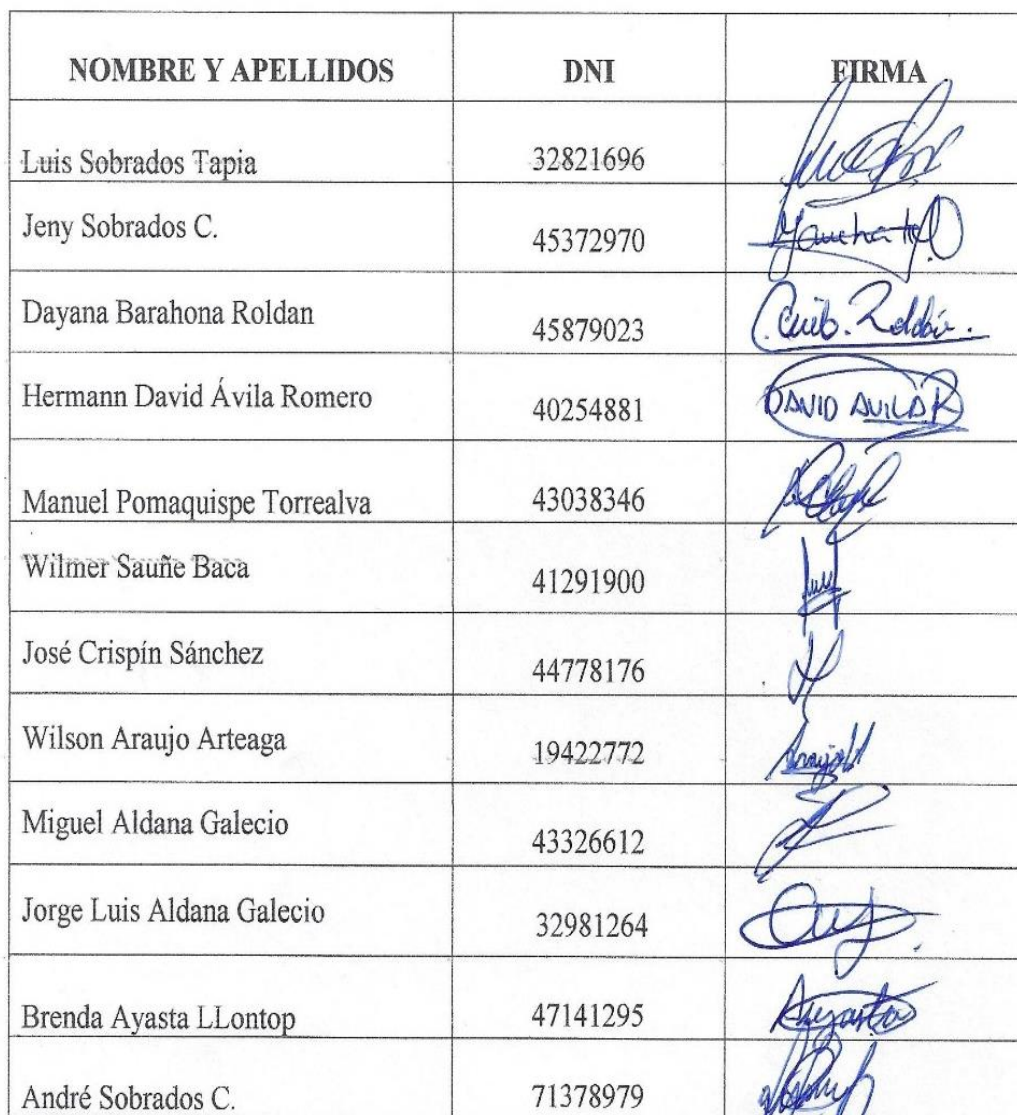 NOMBRE Y APELLIDOS DNI FIRMA
Luis Sobrados Tapia 32821696
Jeny Sobrados C. 45372970
Dayana Barahona Roldan 45879023 Roldán.
Hermann David Ávila Romero 40254881 DAVID AVILA R
Manuel Pomaquispe Torrealva 43038346
Wilmer Sauñe Baca 41291900
José Crispín Sánchez 44778176
Wilson Araujo Arteaga 19422772
Miguel Aldana Galecio 43326612
Jorge Luis Aldana Galecio 32981264
Brenda Ayasta LLontop 47141295 Ayasta
André Sobrados C. 71378979